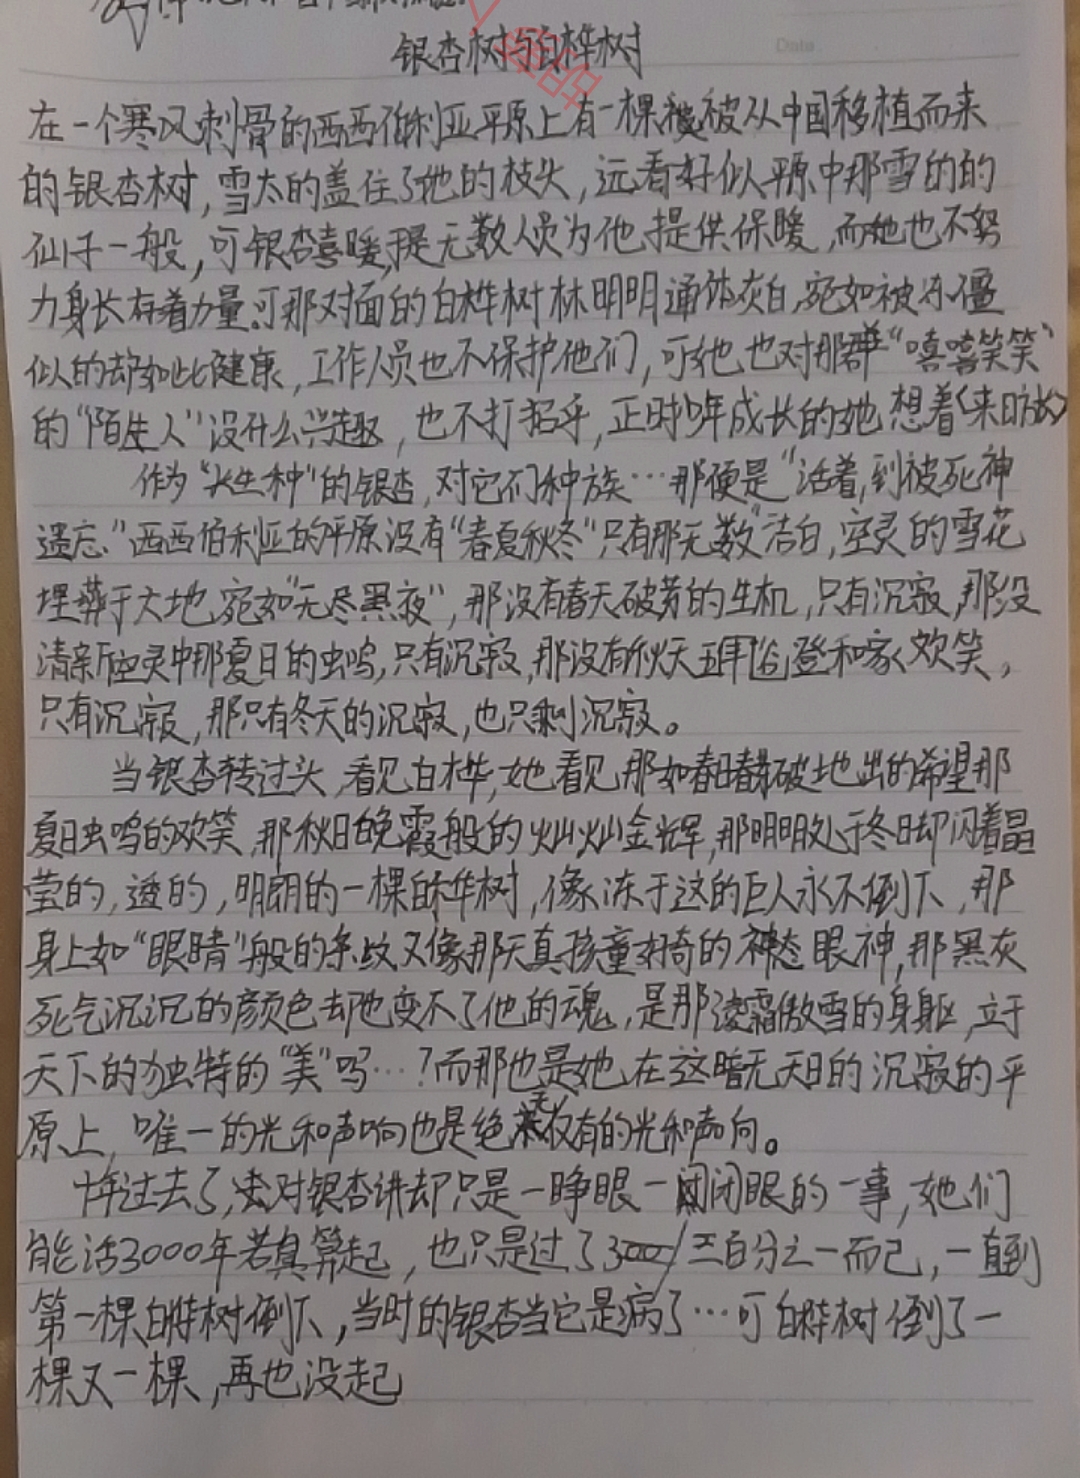 Date
银杏树与白桦树
在一个寒风刺骨的西西伯利亚平原上有一棵被从中国移植而来
的银杏树，雪太的盖住了她的枝头，远看好似平原中那雪的的
仙子一般，可银杏喜暖，提无数人员为他提供保暖，而她也不努
力身长存着力量，可那对面的白桦树林明明通体灰白，宛如被冻僵
似的却如此健康，工作人员也不保护他们，可她也对那群“嘻嘻笑笑”
的“陌生人”没什么兴趣，也不打招乎，正时少年成长的她想着《来日方长》
作为“长生种”的银杏，对它们种族…那便是“活着，到被死神
遗忘”西西伯利亚的平原没有“春夏秋冬”只有那无数洁白，空灵的雪花
埋葬于大地，宛如“无尽黑夜”，那没有春天破芽的生机，只有沉寂，那没
清新空灵中那夏日的虫鸣，只有沉寂，那没有秋天五谷登和家人欢笑，
只有沉寂，那只有冬天的沉寂，也只剩沉寂。
当银杏转过头，看见白桦，她看见那如春日破地出的希望那
夏日虫鸣的欢笑，那秋日晚霞般的灿灿金辉，那明明处于冬日却闪着晶
莹的，透的，明朗的一棵白桦树，像冻于这的巨人永不倒下，那
身上如“眼睛”般的条纹又像那天真孩童好奇的神态眼神，那黑灰
死气沉沉的颜色却也变不了他的魂，是那凌霜傲雪的身躯，立于
天下的独特的“美”吗…？而那也是她在这暗无天日的沉寂的平
原上，唯一的光和声响也是绝无仅有的光和声向。
十年过去了，这对银杏讲却只是一睁眼一闭眼的一事，她们
能活3000年若真算起，也只是过了三百分之一而己，一直到
第一棵白桦树倒下，当时的银杏当它是病了…可白桦树倒了一
棵又一棵，再也没起